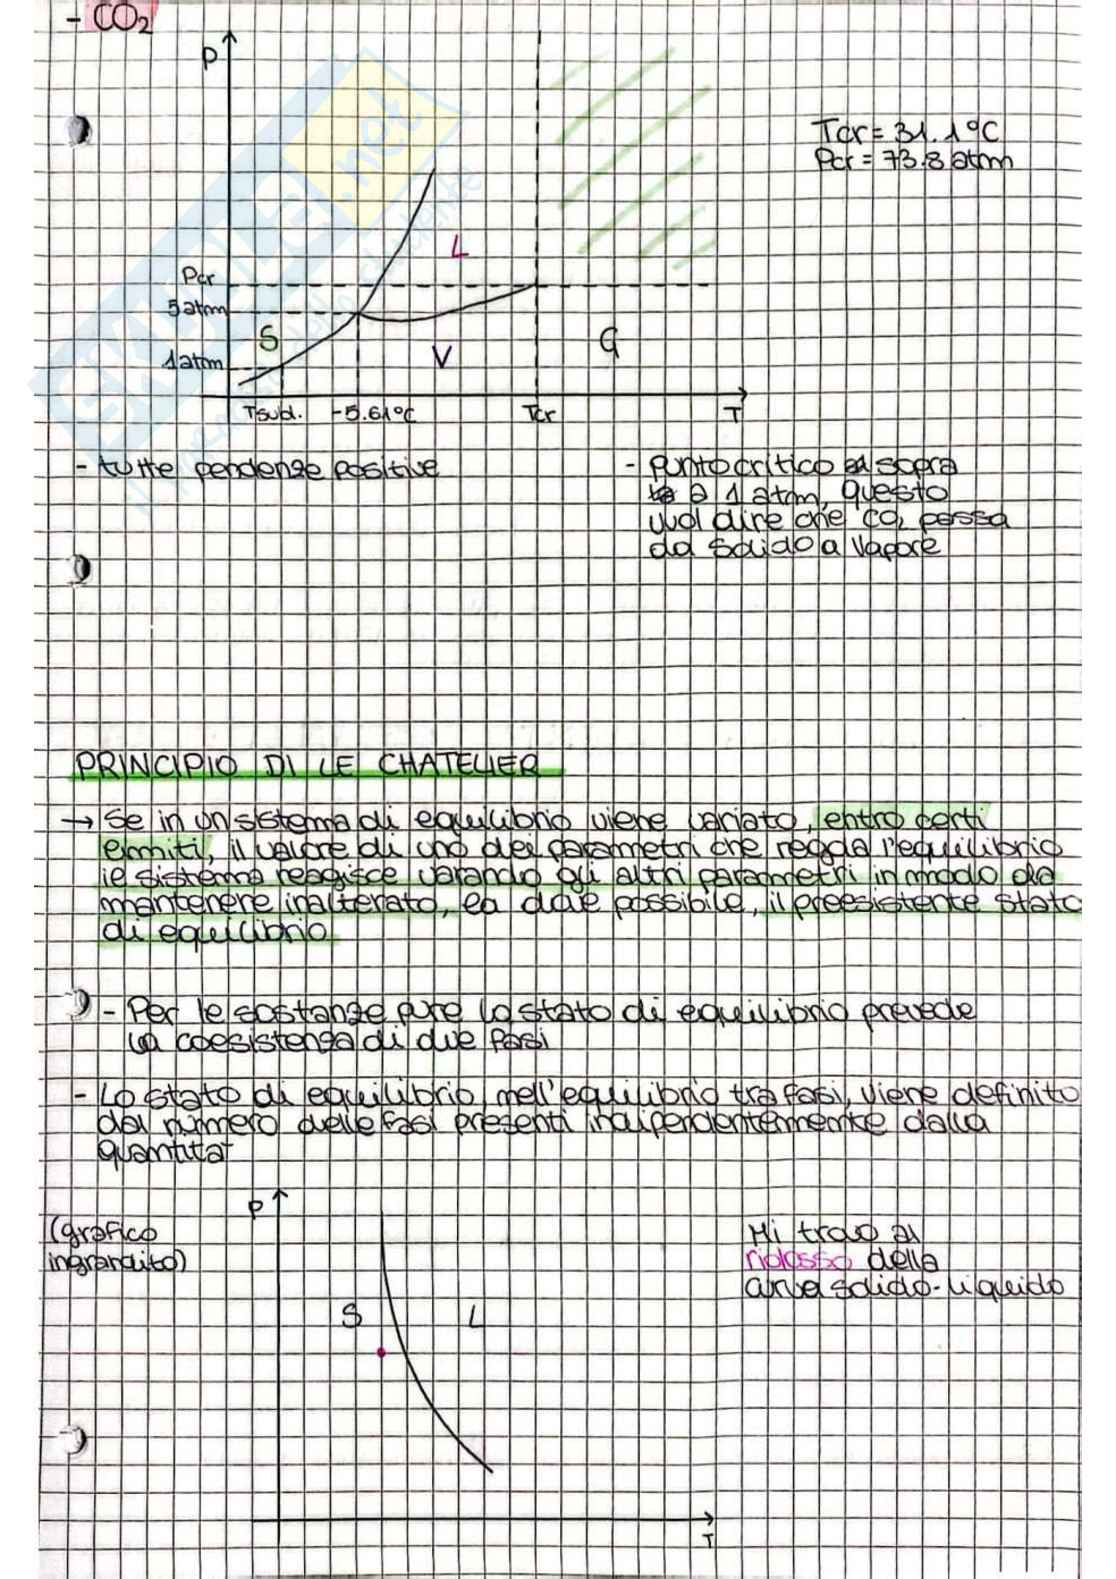 - CO₂
P
Tcr = 31.1°C
Pcr = 73.8 atm
L
Pcr
5 atm
S
V
G
1 atm
Tsubl. -5.61°C Tcr T
- tutte pendenze positive
- punto critico al sopra
a 1 atm, questo
vuol dire che CO₂ passa
da solido a vapore
PRINCIPIO DI LE CHATELIER
→ Se in un sistema di equilibrio viene variato, entro certi
limiti, il valore di uno dei parametri che regola l'equilibrio
il sistema reagisce varando gli altri parametri in modo da
mantenere inalterato, ea dove possibile, il preesistente stato
di equilibrio
- Per le sostanze pure lo stato di equilibrio prevede
la coesistenza di due fasi
- Lo stato di equilibrio, nell'equilibrio tra fasi, viene definito
dal numero delle fasi presenti indipendentemente dalla
quantità
P
(grafico
ingrandito)
Mi trovo al
ridosso della
curva solido-liquido
S L
T